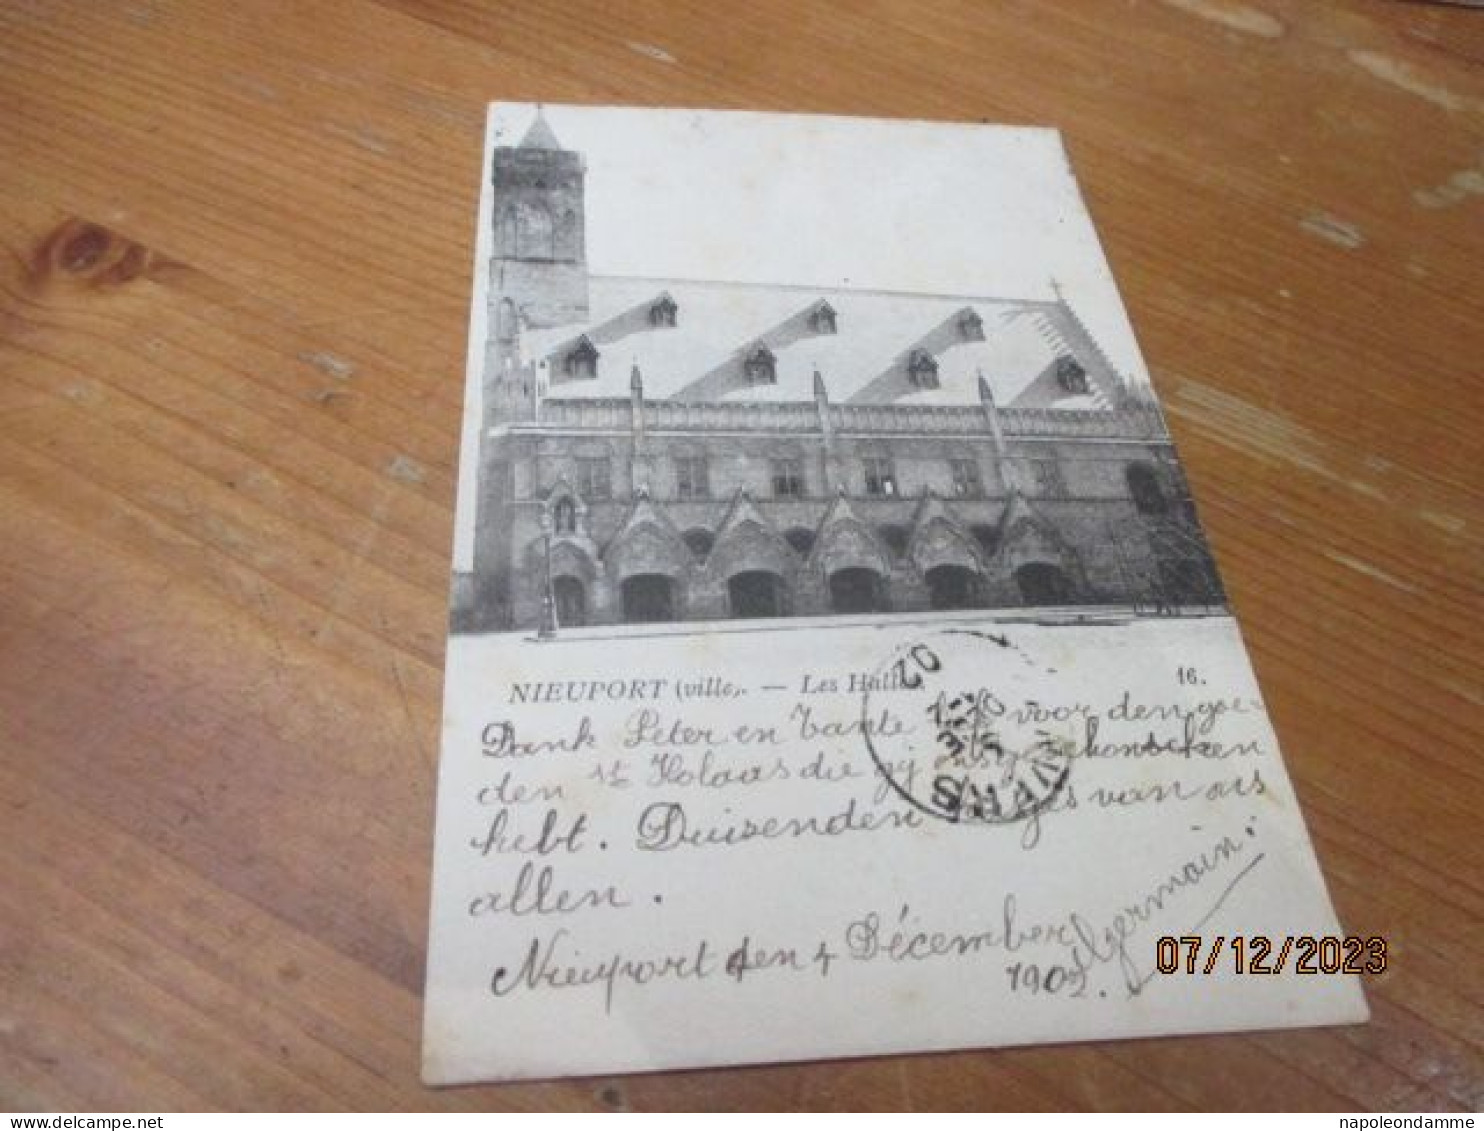 NIEUPORT (ville). — Les Halles
16.
Dank Peter en Tante voor den goe-
den st Kolaas die gij ons geschonken
hebt. Duizenden van ons
allen.
Nieuport den 4 Décember
1902.
Germain.
ANVERS
02
07/12/2023
www.delcampe.net
napoleondamme